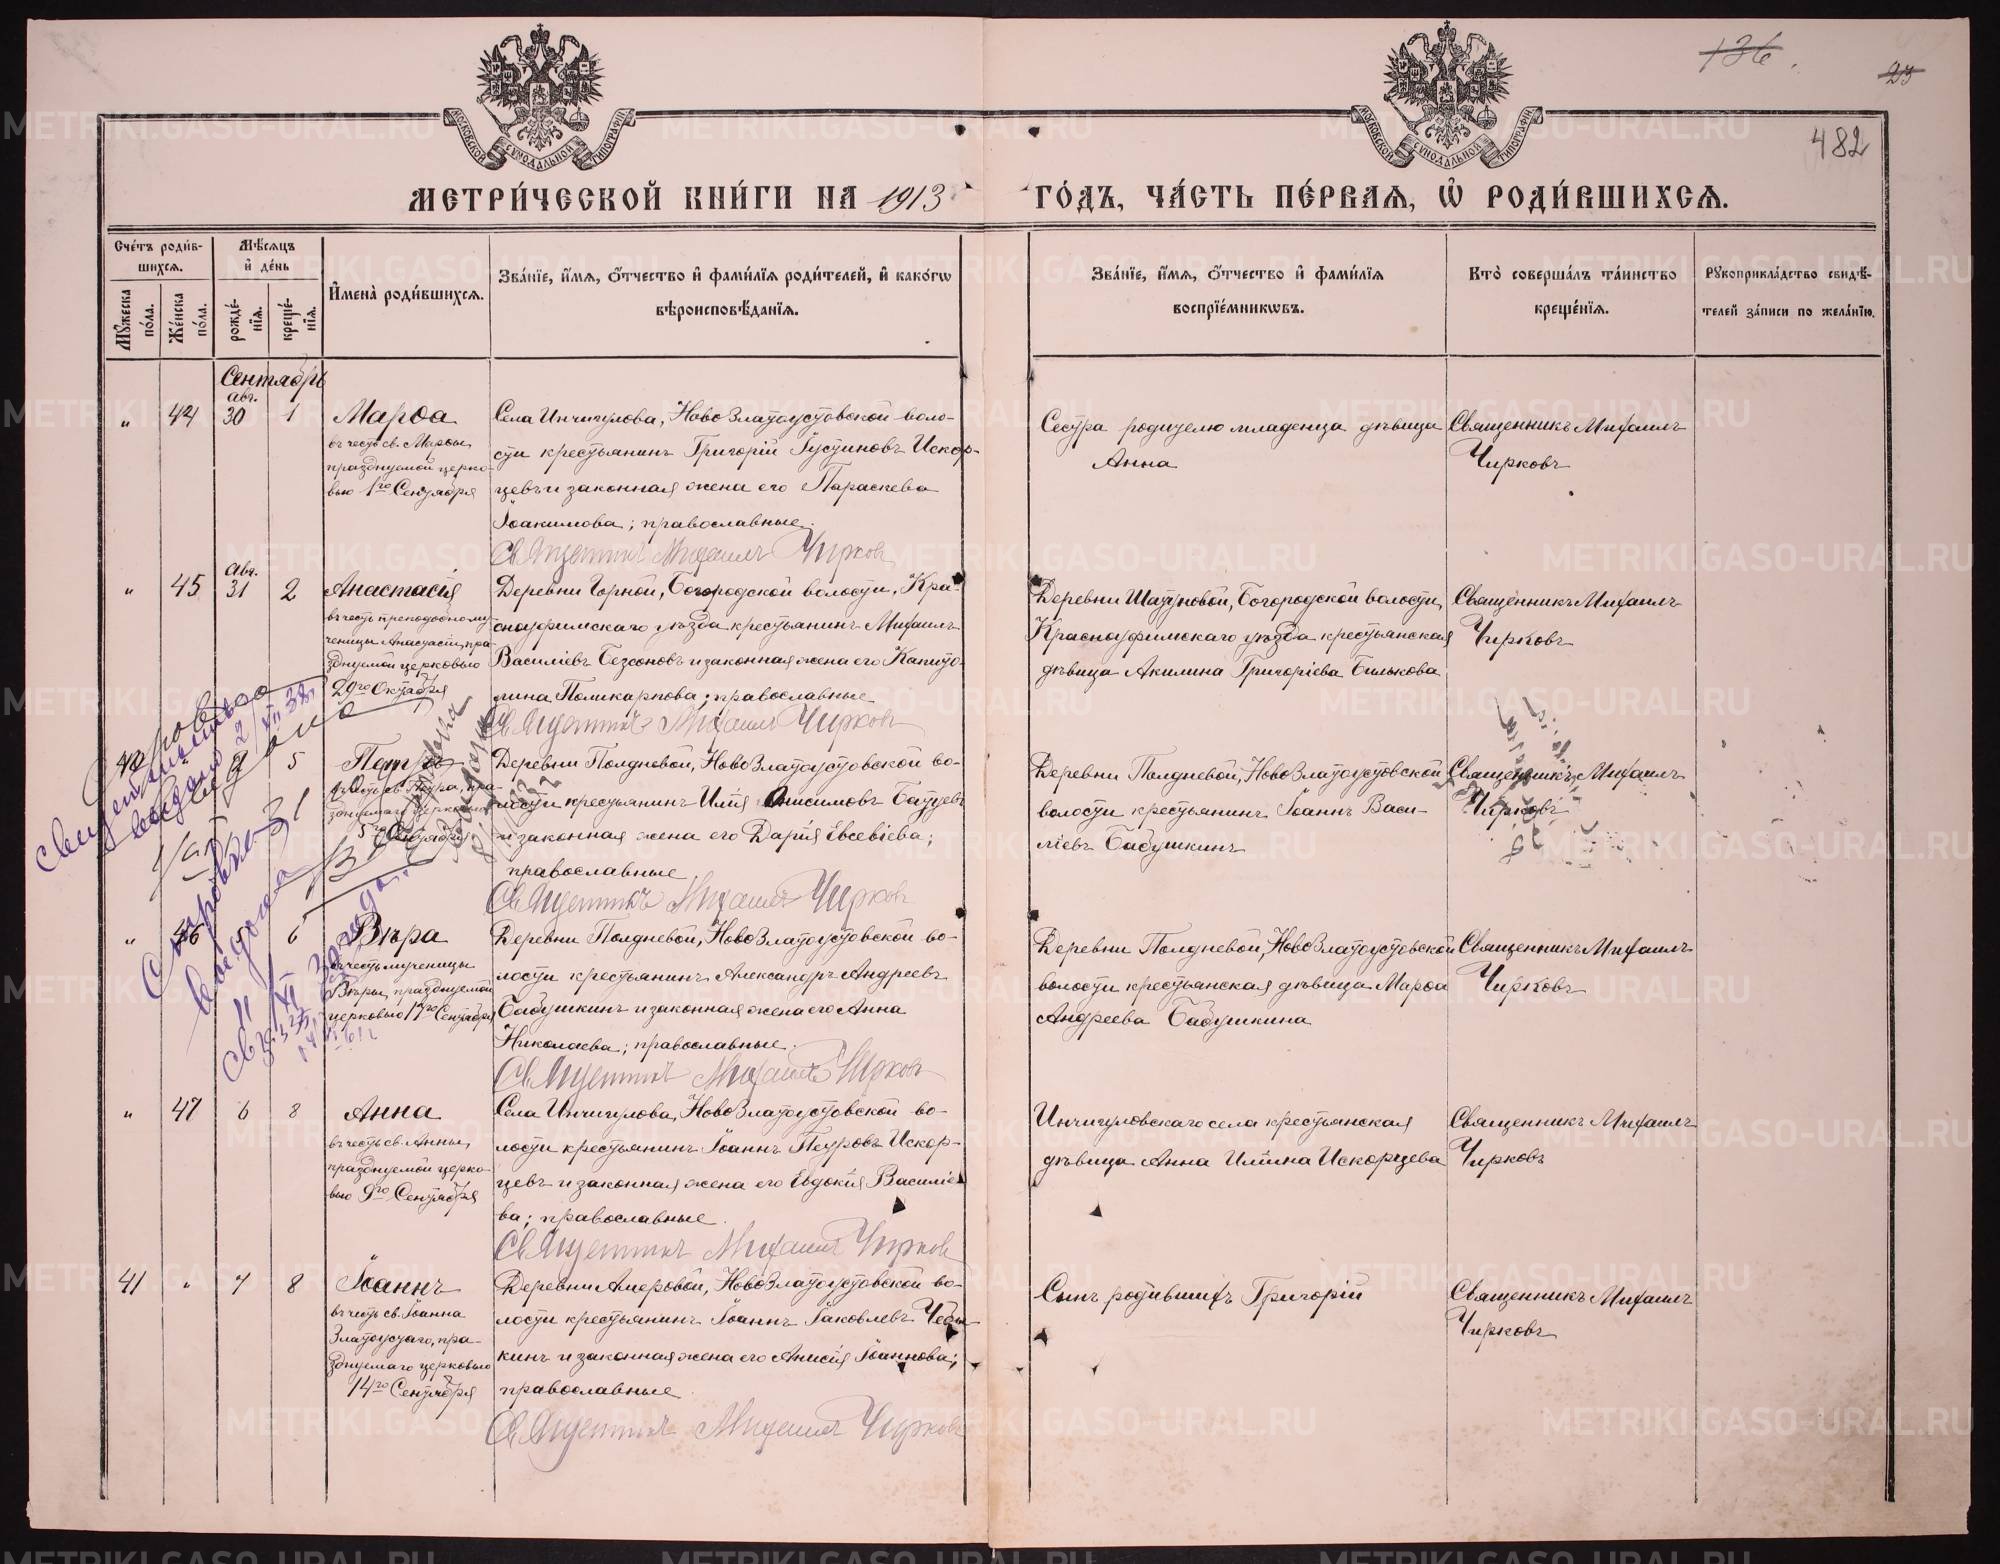 136.
23
482
МОСКОВСКОЙ СѴНОДАЛЬНОЙ ТИПОГРАФІИ
МОСКОВСКОЙ СѴНОДАЛЬНОЙ ТИПОГРАФІИ
МЕТРИ́ЧЕСКОЙ КНИ́ГИ НА 1913 ГО́ДЪ, ЧА́СТЬ ПЕ́РВАЯ, Ѡ҆ РОДИ́ВШИХСЯ.
Сче́тъ роди́в-
шихся.
Мꙋ́жеска по́ла.
Же́нска по́ла.
Мѣ́сяцъ
и҆ де́нь
рожде́-
нїя.
креще́-
нїя.
И҆мена̀ роди́вшихся.
Зва́нїе, и҆́мя, ѻ҆́тчество и҆ фами́лїя роди́телей, и҆ како́гѡ
вѣроисповѣ́данїя.
Зва́нїе, и҆́мя, ѻ҆́тчество и҆ фами́лїя
воспрїе́мникѡвъ.
Кто̀ соверша́лъ та́инство
креще́нїя.
Рꙋкоприкла́дство свидѣ́-
телей за́писи по жела́нїю.
Сентябрь
"
44
авг.
30
1
Марѳа
въ честь св. Марѳы,
празднуемой церко-
вью 1го Сентября
Села Инчигулова, Ново Златоустовской воло-
сти крестьянинъ Григорій Іустиновъ Искор-
цевъ и законная жена его Параскева
Іоакимова; православные.
Священникъ Михаилъ Чирковъ
Сестра родителю младенца дѣвица
Анна
Священникъ Михаилъ
Чирковъ
"
45
авг.
31
2
Анастасія
въ честь преподобному-
ченицы Анастасіи, пра-
зднуемой церковью
29го Октября
Деревни Горной, Богородской волости, Кра-
сноуфимскаго уѣзда крестьянинъ Михаилъ
Василіевъ Безсоновъ и законная жена его Капито-
лина Поликарпова; православные
Священникъ Михаилъ Чирковъ
Деревни Шатуновой, Богородской волости,
Красноуфимскаго уѣзда крестьянская
дѣвица Акилина Григоріева Билькова
Священникъ Михаилъ
Чирковъ
40
5
Петръ
въ честь св. Петра, пра-
зднуемаго церковью
5го Октября
Деревни Полдневой, Ново Златоустовской во-
лости крестьянинъ Илія Анисимовъ Батуевъ
и законная жена его Дарія Евсевіева;
православные
Священникъ Михаилъ Чирковъ
Деревни Полдневой, Ново Златоустовской
волости крестьянинъ Іоаннъ Васи-
ліевъ Бабушкинъ
Священникъ Михаилъ
Чирковъ
"
46
6
Вѣра
въ честь мученицы
Вѣры, празднуемой
церковью 17го Сентября
Деревни Полдневой, Ново Златоустовской во-
лости крестьянинъ Александръ Андреевъ
Бабушкинъ и законная жена его Анна
Николаева; православные.
Священникъ Михаилъ Чирковъ
Деревни Полдневой, Ново Златоустовской
волости крестьянская дѣвица Марѳа
Андреева Бабушкина
Священникъ Михаилъ
Чирковъ
"
47
6
8
Анна
въ честь св. Анны,
празднуемой церко-
вью 9го Сентября
Села Инчигулова, Ново Златоустовской во-
лости крестьянинъ Іоаннъ Петровъ Искор-
цевъ и законная жена его Евдокія Василіе-
ва; православные.
Священникъ Михаилъ Чирковъ
Инчигуловскаго села крестьянская
дѣвица Анна Иліина Искорцева
Священникъ Михаилъ
Чирковъ
41
"
7
8
Іоаннъ
въ честь св. Іоанна
Златоустаго, пра-
зднуемаго церковью
14го Сентября
Деревни Амеровой, Ново Златоустовской во-
лости крестьянинъ Іоаннъ Іаковлевъ Чебы-
кинъ и законная жена его Анисія Іоаннова;
православные
Священникъ Михаилъ Чирковъ
Сынъ родившихъ Григорій
Священникъ Михаилъ
Чирковъ
METRIKI.GASO-URAL.RU